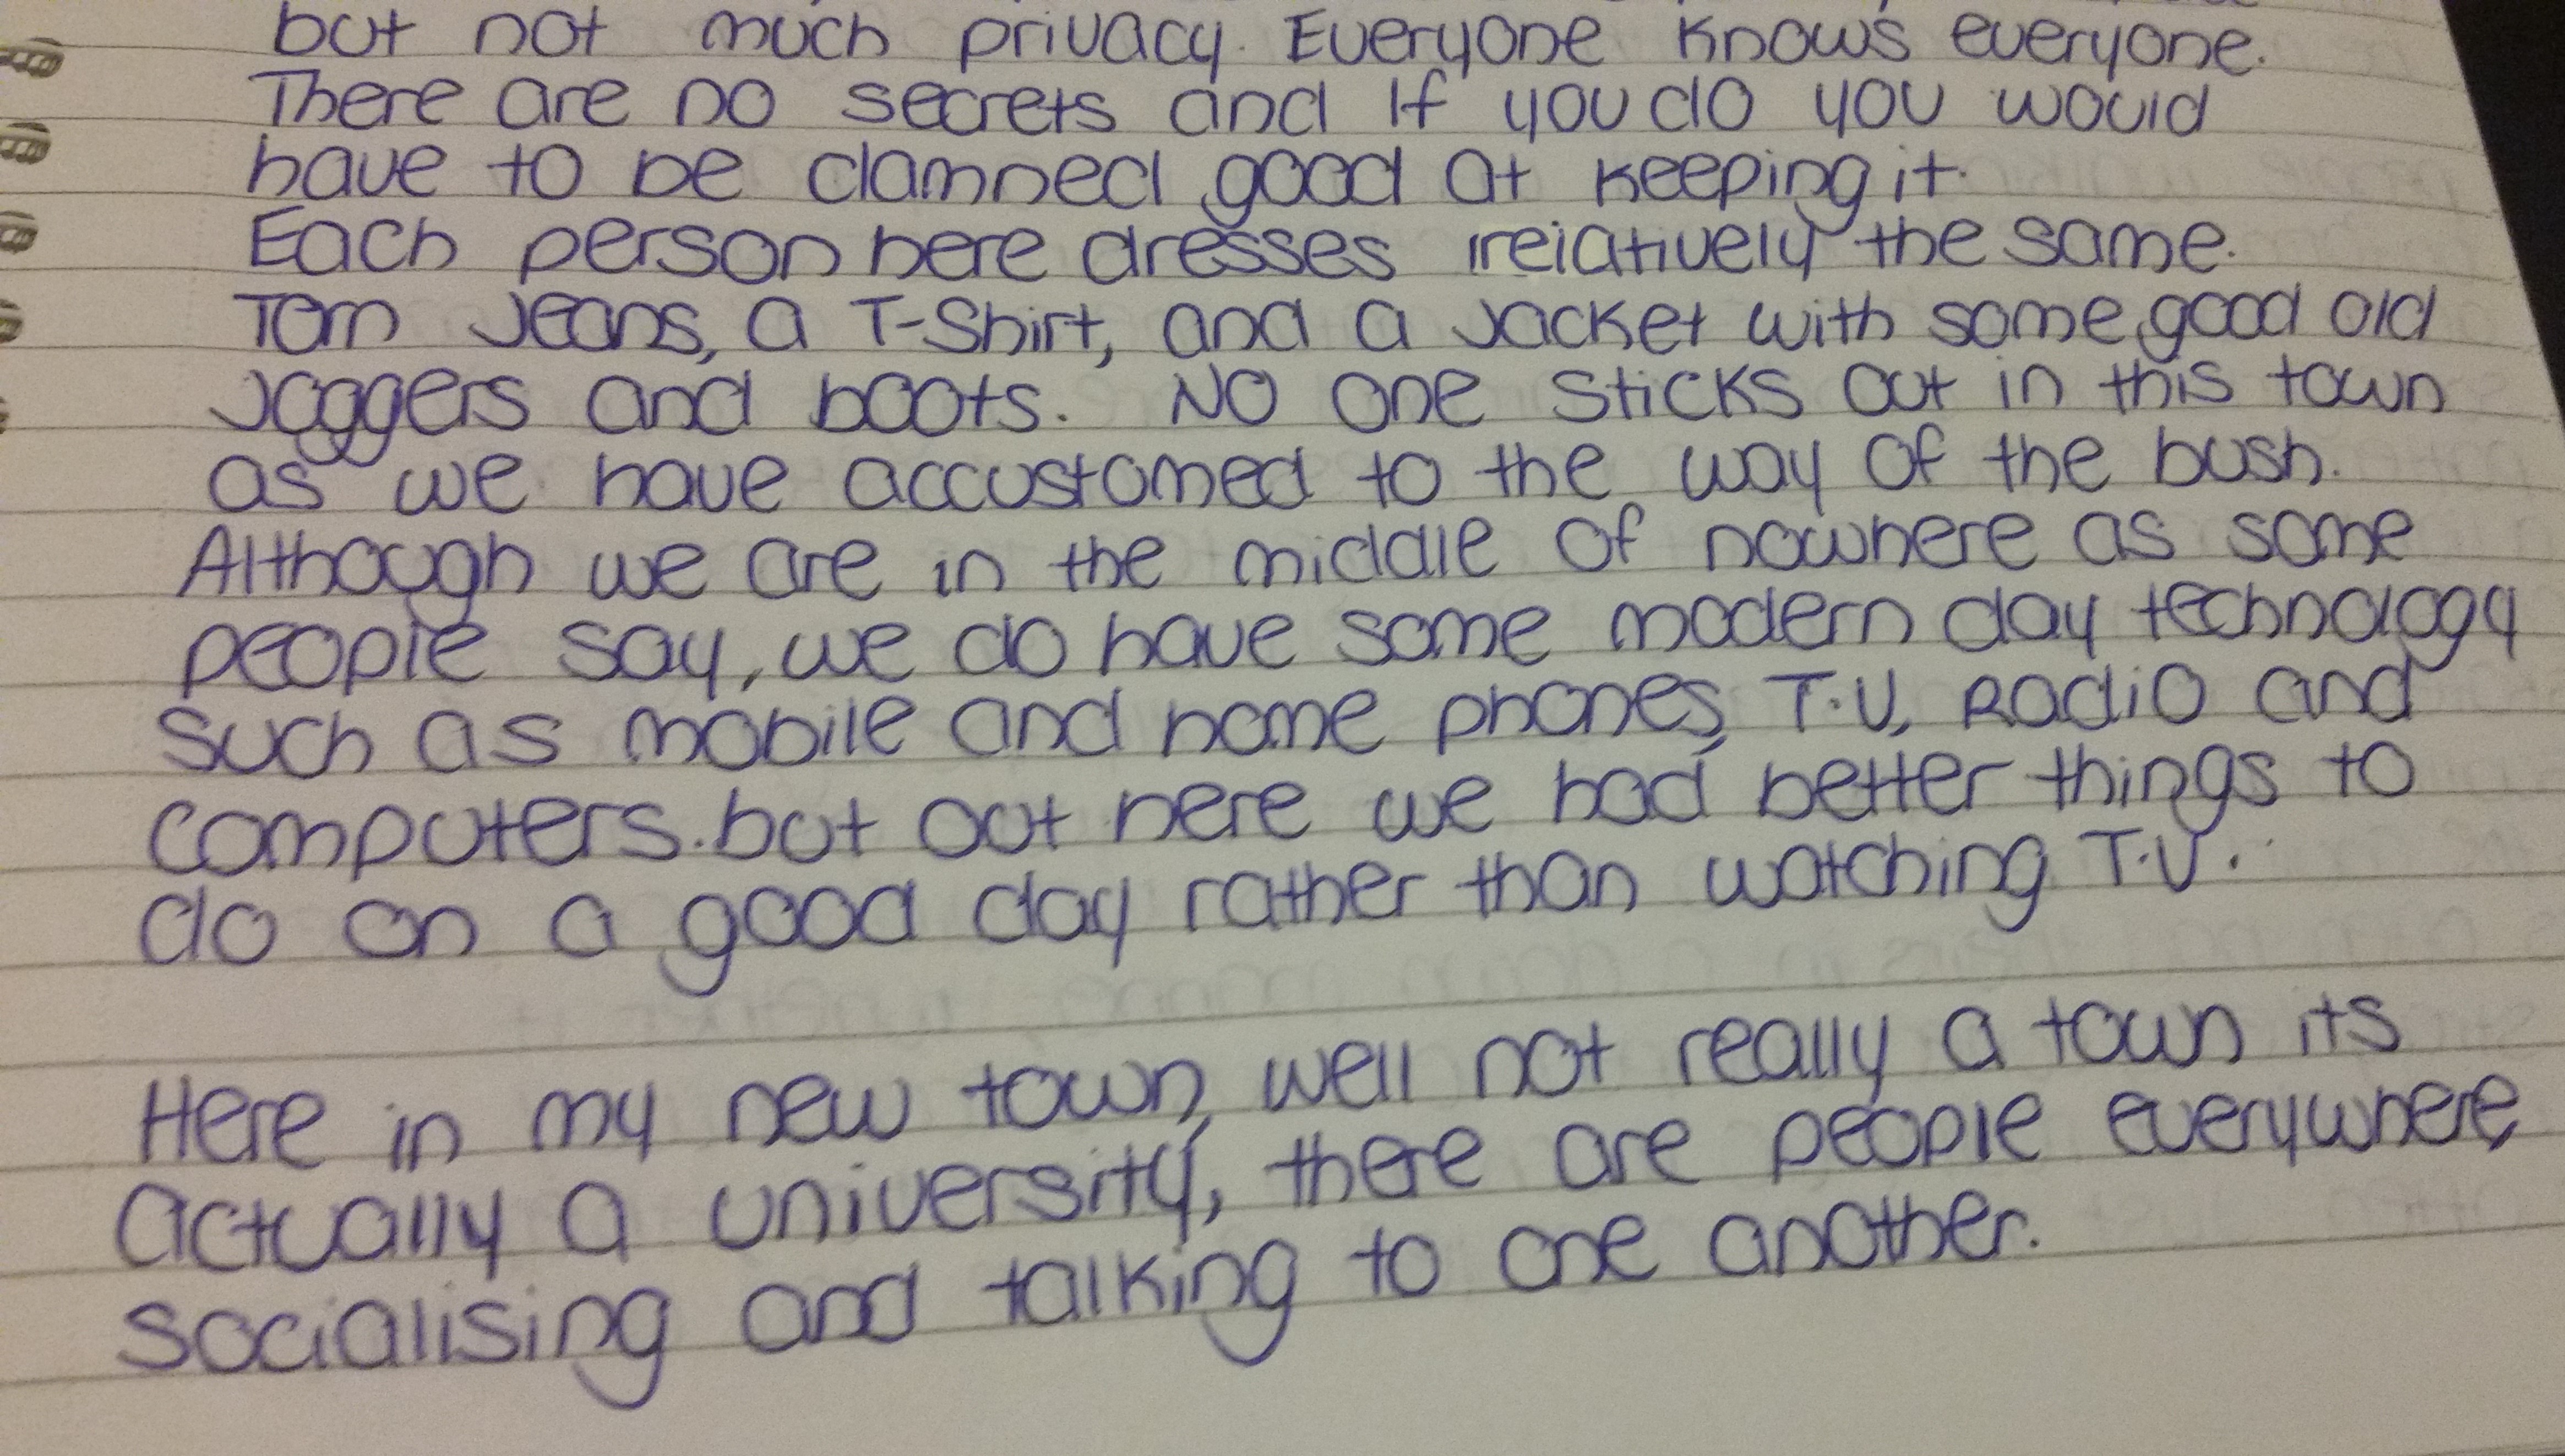 but not much privacy. Everyone knows everyone.
There are no secrets and If you do you would
have to be damned good at keeping it.
Each person here dresses relatively the same.
Torn Jeans, a T-Shirt, and a Jacket with some good old
Joggers and boots. No one sticks out in this town
as we have accustomed to the way of the bush.
Although we are in the middle of nowhere as some
people say, we do have some modern day technology
such as mobile and home phones, T.V, Radio and
computers. but out here we had better things to
do on a good day rather than watching T.V.
Here in my new town, well not really a town its
actually a university, there are people everywhere,
socialising and talking to one another.